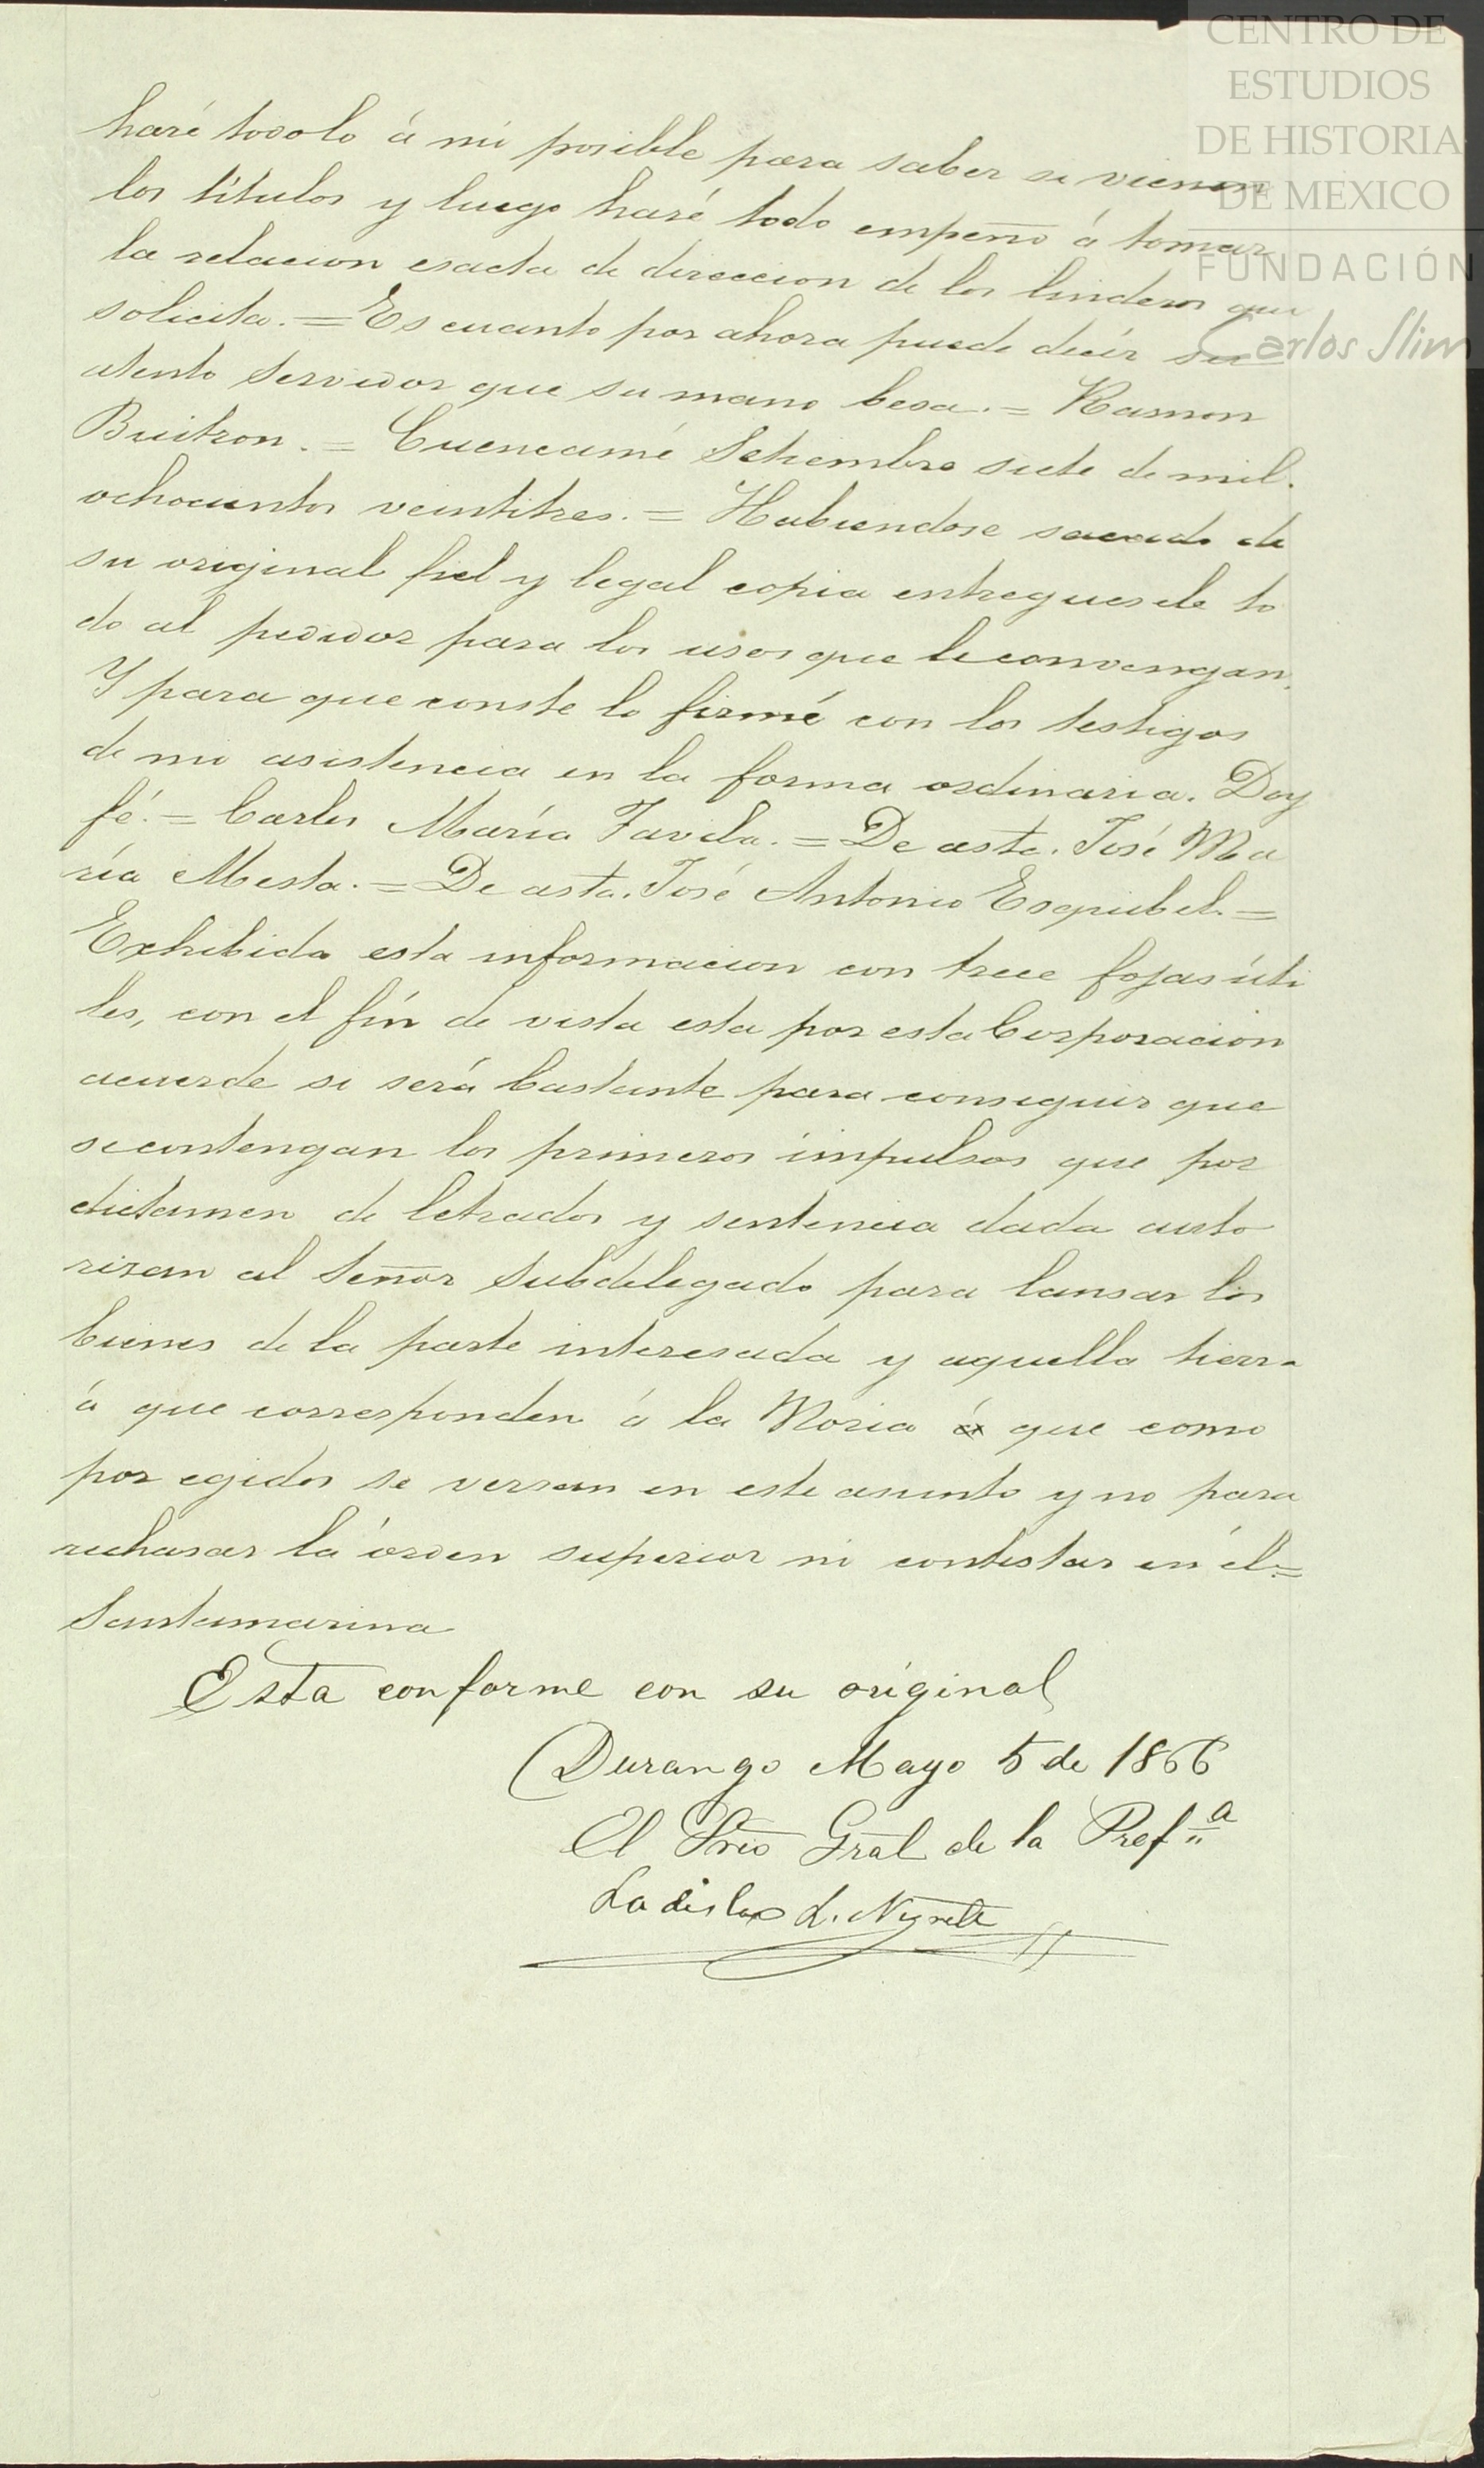 CENTRO DE
ESTUDIOS
DE HISTORIA
DE MEXICO
FUNDACIÓN
Carlos Slim
haré todolo á mi posible para saber si vienen
los títulos y luego haré todo empeño á tomar
la relacion esacta de direccion de los linderos que
solicita. = Es cuanto por ahora puede decir su
atento servidor que su mano besa. = Ramon
Buitron. = Cuencamé Setiembre siete de mil.
ochocientos veintitres. = Habiendose sacado de
su original fiel y legal copia entreguesele to
do al pedidor para los usos que le convengan.
Y para que conste lo firmé con los testigos
de mi asistencia en la forma ordinaria. Doy
fé. = Carlos María Favela. = De asta. José Ma
ría Mesta. = De asta. José Antonio Esquibel. =
Exhibida esta informacion con trece fojas úti
les, con el fín de vista esta por esta Corporacion
acuerde si será bastante para conseguir que
se contengan los primeros impulsos que por
dictamen de letrados y sentencia dada auto
rizan al Señor Subdelegado para lansar los
bienes de la parte interesada y aquella tierra
á que corresponden á la Noria á que como
por egidos se versan en este asunto y no para
rechasar la órden superior ni contestar en él =
Santamarina
Esta conforme con su original
Durango Mayo 5 de 1866
El Srio Gral de la Prefª
Ladislao L. Negrete